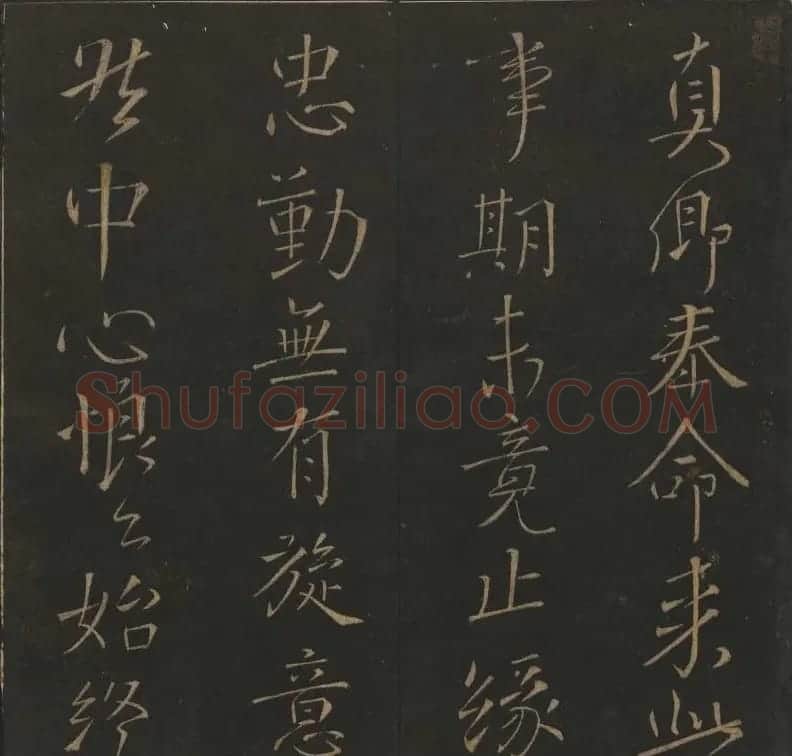 真卿奉命来此
事期未竟止緣
忠勤無有旋意
然中心恨恨始終
Shufaziliao.COM